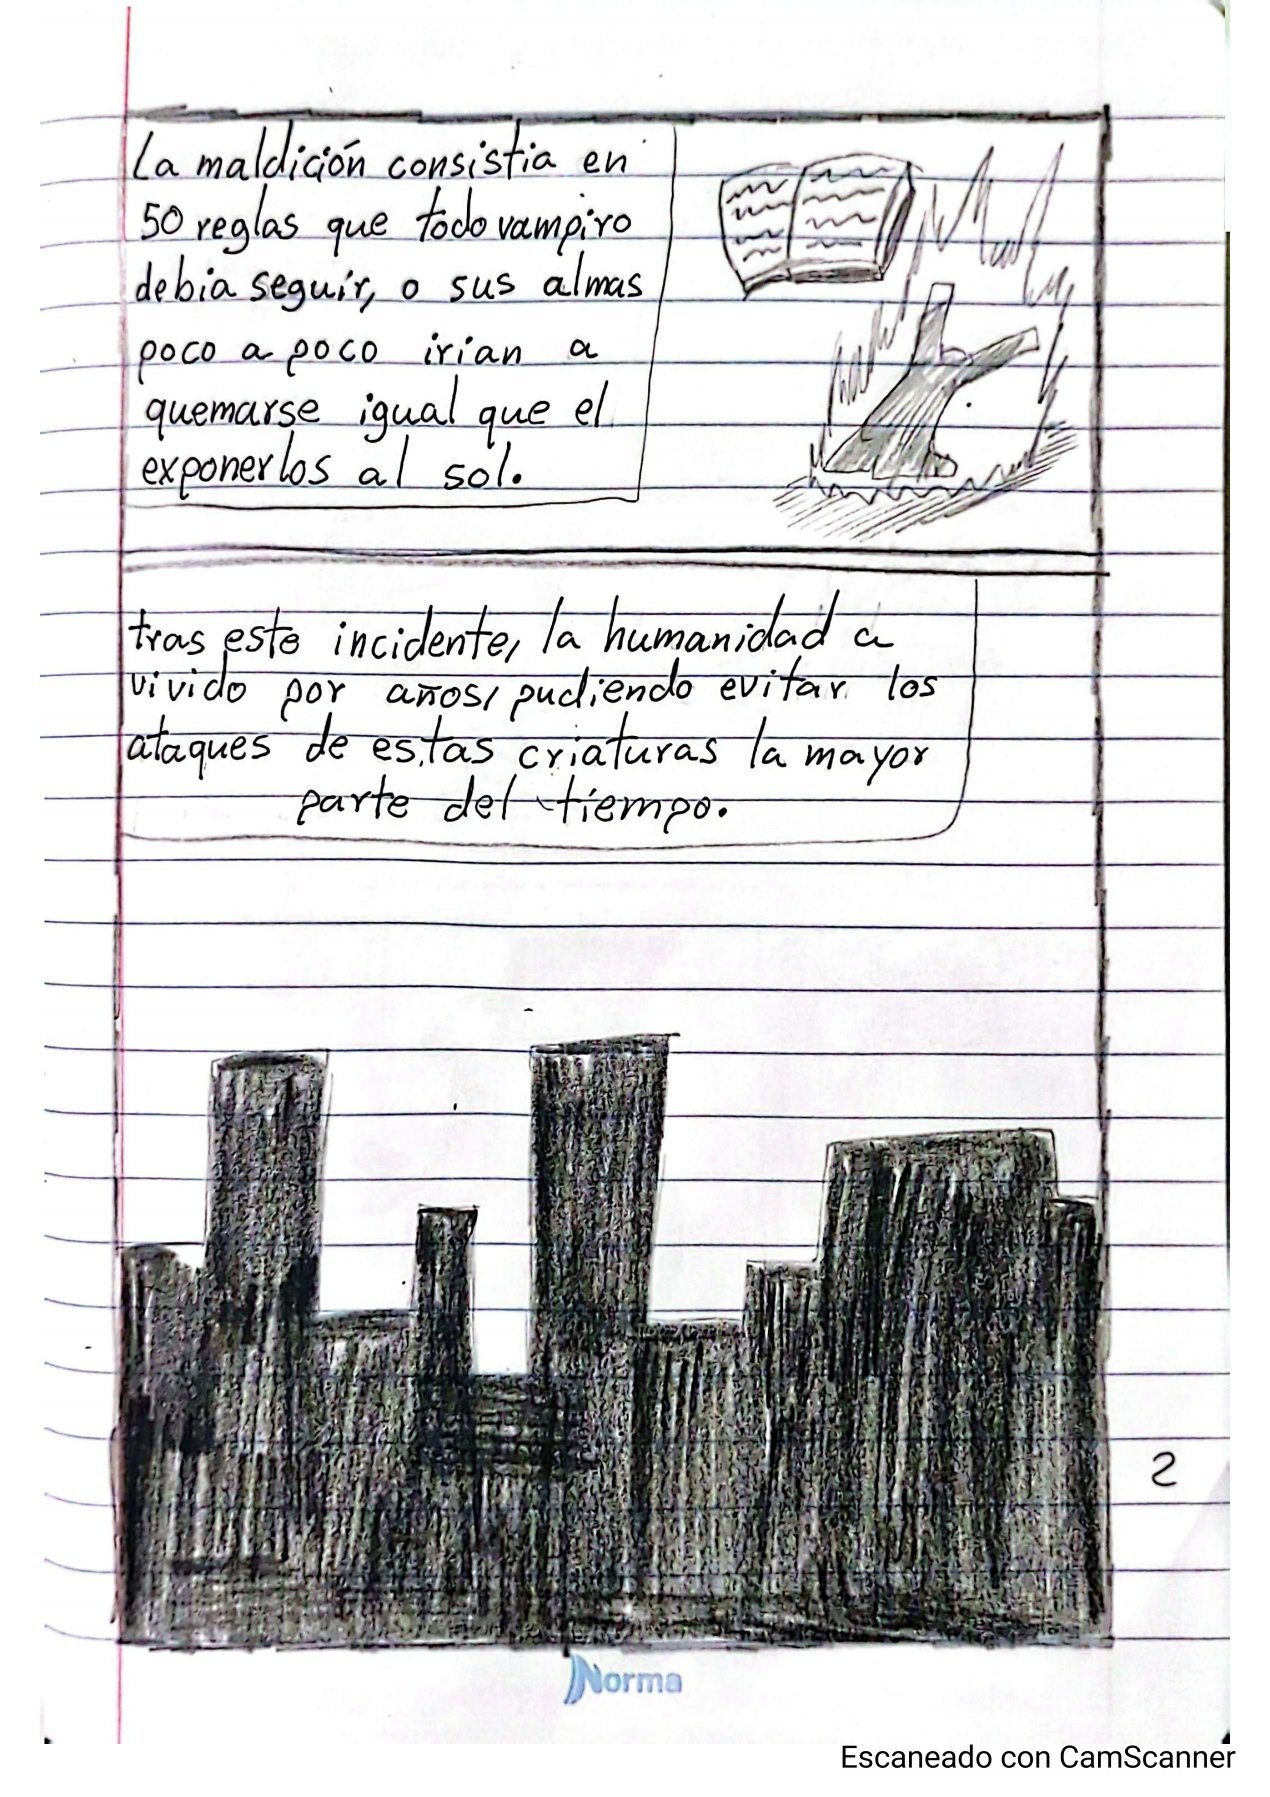 La maldición consistia en
50 reglas que todo vampiro
debia seguir, o sus almas
poco a poco irian a
quemarse igual que el
exponerlos al sol.
tras este incidente, la humanidad a
vivido por años, pudiendo evitar los
ataques de estas criaturas la mayor
parte del tiempo.
2
Norma
Escaneado con CamScanner